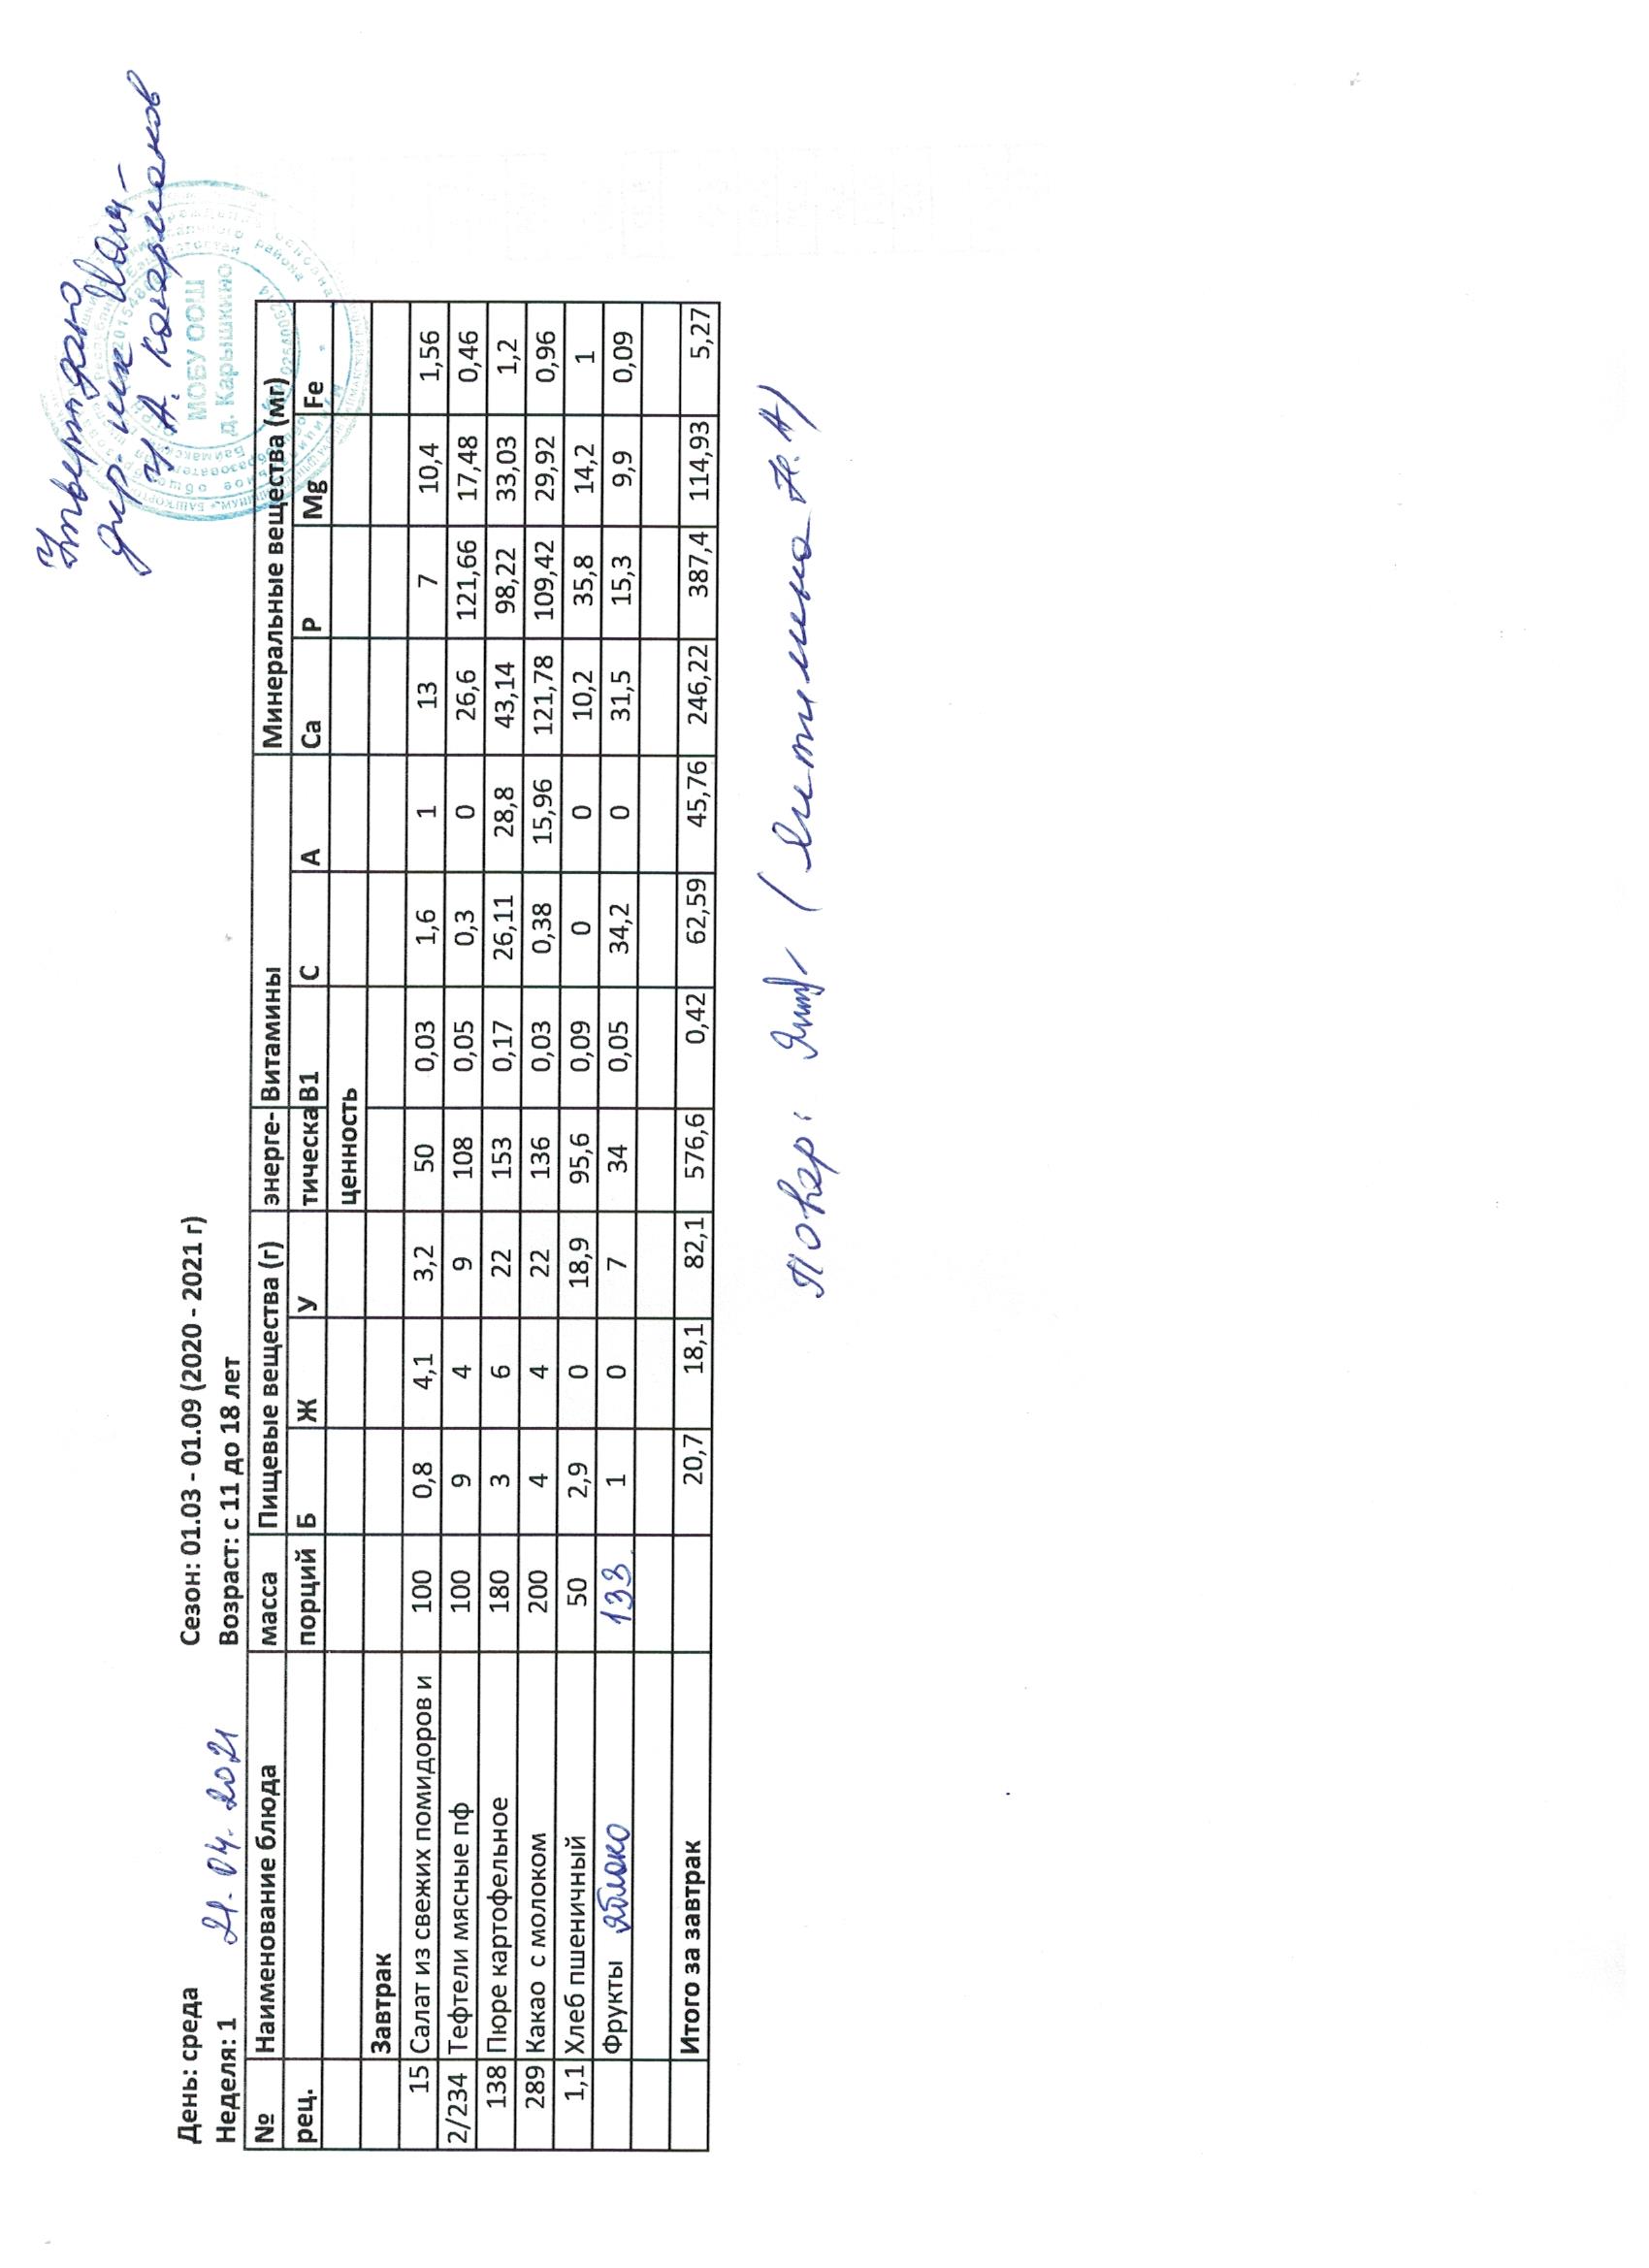 Утверждаю
дир. шк
У. А.
МОБУ ООШ
д. Карышкино
День: среда Сезон: 01.03 - 01.09 (2020 - 2021 г)
Неделя: 1 21.04.2021 Возраст: с 11 до 18 лет
№ Наименование блюда масса Пищевые вещества (г) энерге- Витамины Минеральные вещества (мг)
рец. порций Б Ж У тическа В1 С А Са Р Mg Fe
ценность
Завтрак
15 Салат из свежих помидоров и 100 0,8 4,1 3,2 50 0,03 1,6 1 13 7 10,4 1,56
2/234 Тефтели мясные пф 100 9 4 9 108 0,05 0,3 0 26,6 121,66 17,48 0,46
138 Пюре картофельное 180 3 6 22 153 0,17 26,11 28,8 43,14 98,22 33,03 1,2
289 Какао с молоком 200 4 4 22 136 0,03 0,38 15,96 121,78 109,42 29,92 0,96
1,1 Хлеб пшеничный 50 2,9 0 18,9 95,6 0,09 0 0 10,2 35,8 14,2 1
Фрукты яблоко 133 1 0 7 34 0,05 34,2 0 31,5 15,3 9,9 0,09
Итого за завтрак 20,7 18,1 82,1 576,6 0,42 62,59 45,76 246,22 387,4 114,93 5,27
Повар: